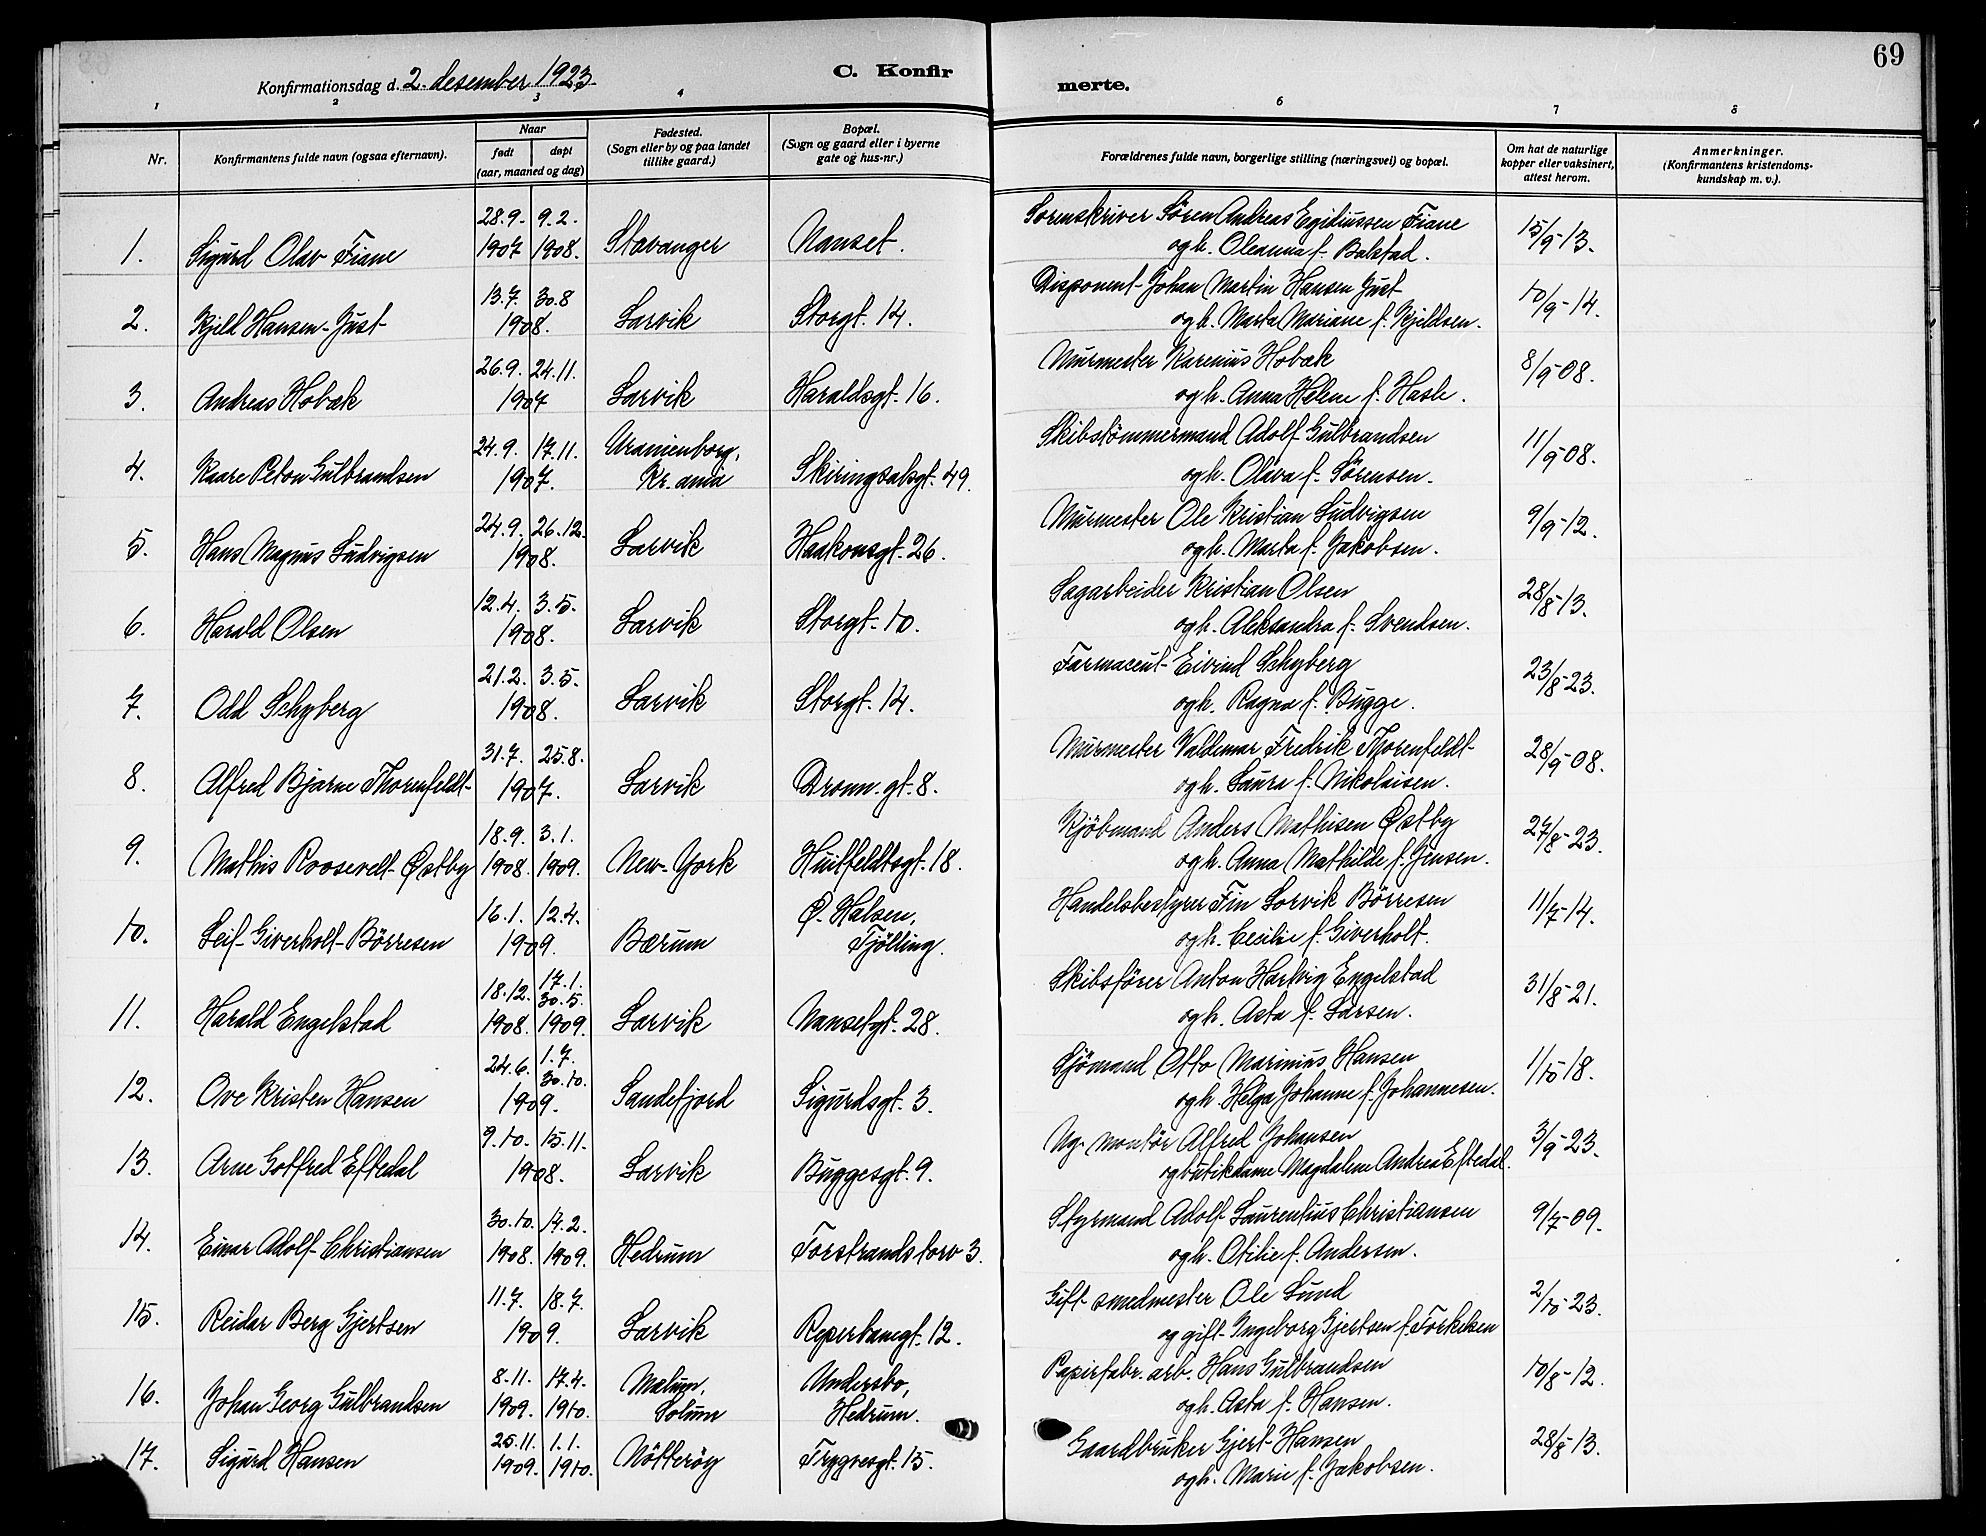 69
Konfirmationsdag d. 2. desember 1923.
C. Konfir
merte.
1 2 3 4 6 7 8
Nr.
Konfirmantens fulde navn (ogsaa efternavn).
Naar
født
døpt
(aar, maaned og dag)
Fødested.
(Sogn eller by og paa landet
tillike gaard.)
Bopæl.
(Sogn og gaard eller i byerne
gate og hus-nr.)
Forældrenes fulde navn, borgerlige stilling (næringsvei) og bopæl.
Om hat de naturlige
kopper eller vaksinert,
attest herom.
Anmerkninger.
(Konfirmantens kristendoms-
kundskap m. v.).
28.9. 9.2. Sorenskriver Søren Andreas Egidiussen Fiane
1. Sigurd Olav Fiane 1907 1908. Stavanger Nanset. og h. Oleanna f. Balstad. 15/9-13.
13.7. 30.8 Disponent Johan Martin Hansen Just
2. Kjeld Hansen-Just 1908. Larvik Storgt. 14. og h. Marta Mariane f. Kjeldsen. 10/9-14.
26.9. 24.11. Murmester Karenius Hobæk
3. Andreas Hobæk 1907 Larvik Haraldsgt. 16. og h. Anna Helene f. Hasle. 8/9-08.
24.9. 17.11. Uranienborg, Skibstømmermand Adolf Gulbrandsen
4. Kaare Peton Gulbrandsen 1907. Kr.ania Skiringsalsgt. 49. og h. Olava f. Sørensen. 11/9-08.
24.9. 26.12. Murmester Ole Kristian Ludvigsen
5. Hans Magnus Ludvigsen 1908. Larvik Haakonsgt. 26. og h. Marta f. Jakobsen. 9/9-12.
12.4. 3.5. Sagarbeider Kristian Olsen
6. Harald Olsen 1908. Larvik Storgt. 10. og h. Aleksandra f. Svendsen. 28/8-13.
21.2. 3.5. Farmaceut Eivind Schyberg
7. Odd Schyberg 1908. Larvik Storgt. 14. og h. Ragna f. Bugge. 23/8-23.
31.7. 25.8. Murmester Valdemar Fredrik Thorenfeldt
8. Alfred Bjarne Thorenfeldt 1907. Larvik Dronn. gt. 8. og h. Laura f. Nikolaisen. 28/9-08.
18.9. 3.1. Kjøbmand Anders Mathisen Østby
9. Mathis Roosevelt Østby 1908. 1909. New-York Huitfeldtsgt. 18. og h. Anna Mathilde f. Jensen. 27/8-23.
16.1. 12.4. Ø. Halsen, Handelsbestyrer Fin Lorvik Børresen
10. Leif Giverholt Børresen 1909. Bærum Tjølling. og h. Cecilie f. Giverholt. 11/7-14.
18.12. 17.1. 30.5. Skibsfører Anton Hartvig Engelstad
11. Harald Engelstad 1908. 1909. Larvik Nansetgt. 28. og h. Asta f. Larsen. 31/8-21.
24.6. 1.7. 30.10. Sjømand Otto Marinius Hansen
12. Ove Kristen Hansen 1909. Sandefjord Sigurdsgt. 3. og h. Helga Johanne f. Johannesen. 1/10-18.
9.10. 15.11. Ug. montør Alfred Johansen
13. Arne Gotfred Eftedal 1908. Larvik Buggesgt. 9. og butikdame Magdalene Andrea Eftedal. 3/9-23.
30.10. 14.2. Styrmand Adolf Laurentius Christiansen
14. Einar Adolf Christiansen 1908. 1909. Hedrum Torstrandstorv 3. og h. Otilie f. Andersen. 9/7-09.
11.7. 18.7. Gift smedmester Ole Lund
15. Reidar Berg Gjertsen 1909. Larvik Reperbanegt. 12. og gift Ingeborg Gjertsen f. Torkelsen 2/10-23.
8.11. 17.4. Mælum, Undersbo, Papirfabr. arb. Hans Gulbrandsen
16. Johan Georg Gulbrandsen 1909. 1910. Solum Hedrum. og h. Asta f. Hansen. 10/8-12.
25.11. 1.1. Gaardbruker Gjert Hansen
17. Sigurd Hansen 1909. 1910. Nøtterøy Trygvesgt. 15. og h. Marie f. Jakobsen. 28/8-13.